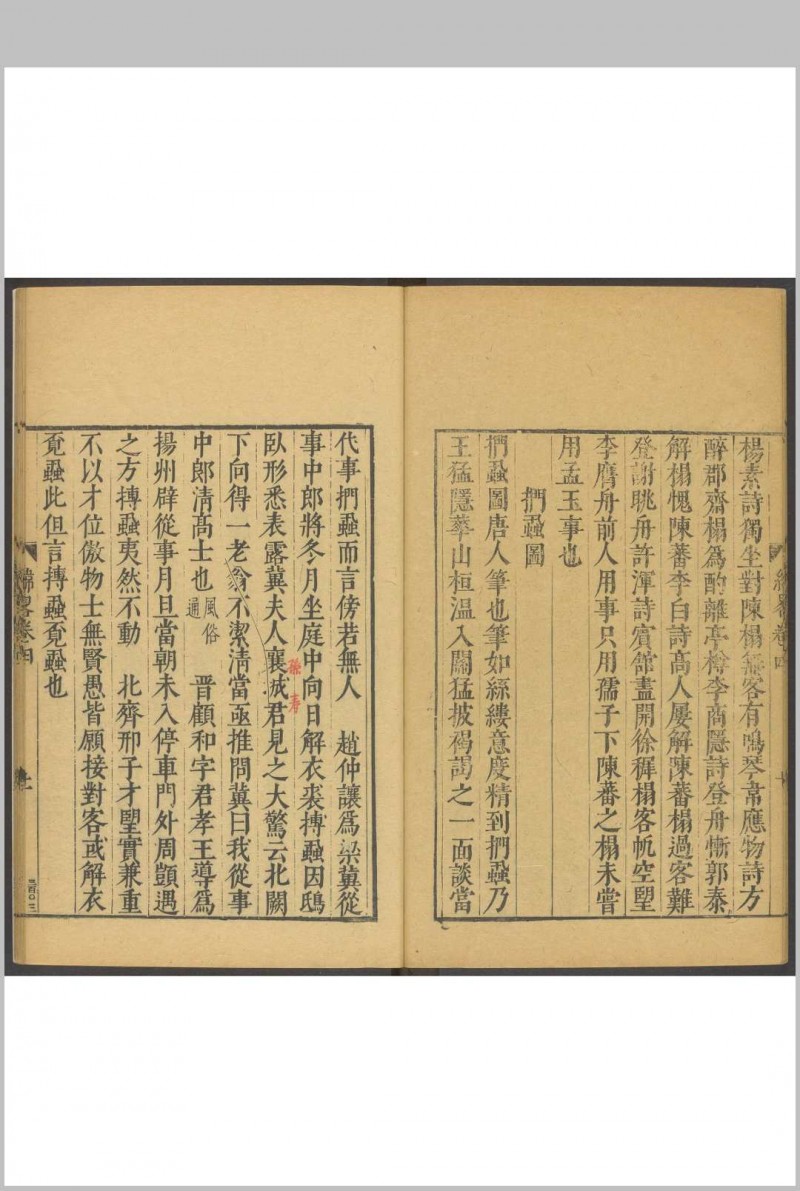 楊素詩獨坐對陳榻無客有鳴琴韋應物詩方
醉郡齋榻爲酌離亭樽李商隱詩登舟慚郭泰
解榻愧陳蕃李白詩高人屢解陳蕃榻過客難
登謝朓舟許渾詩賓館盡開徐穉榻客帆空望
李膺舟前人用事只用孺子下陳蕃之榻未嘗
用孟玉事也
捫蝨圖
捫蝨圖唐人筆也筆如絲縷意度精到捫蝨乃
王猛隱華山桓溫入關猛披褐謁之一面談當
緯畧卷四
十
代事捫蝨而言傍若無人 趙仲讓爲梁冀從
事中郎將冬月坐庭中向日解衣裘搏蝨因鴟
臥形悉表露冀夫人襄城君見之大驚云北闕
孫壽
下向得一老翁不潔清當亟推問冀曰我從事
中郎清髙士也風俗通 晋顧和字君孝王導爲
揚州辟從事月旦當朝未入停車門外周顗遇
之方搏蝨夷然不動 北齊邢子才望實兼重
不以才位傲物士無賢愚皆願接對客或解衣
覓蝨此但言搏蝨覓蝨也
緯畧卷四